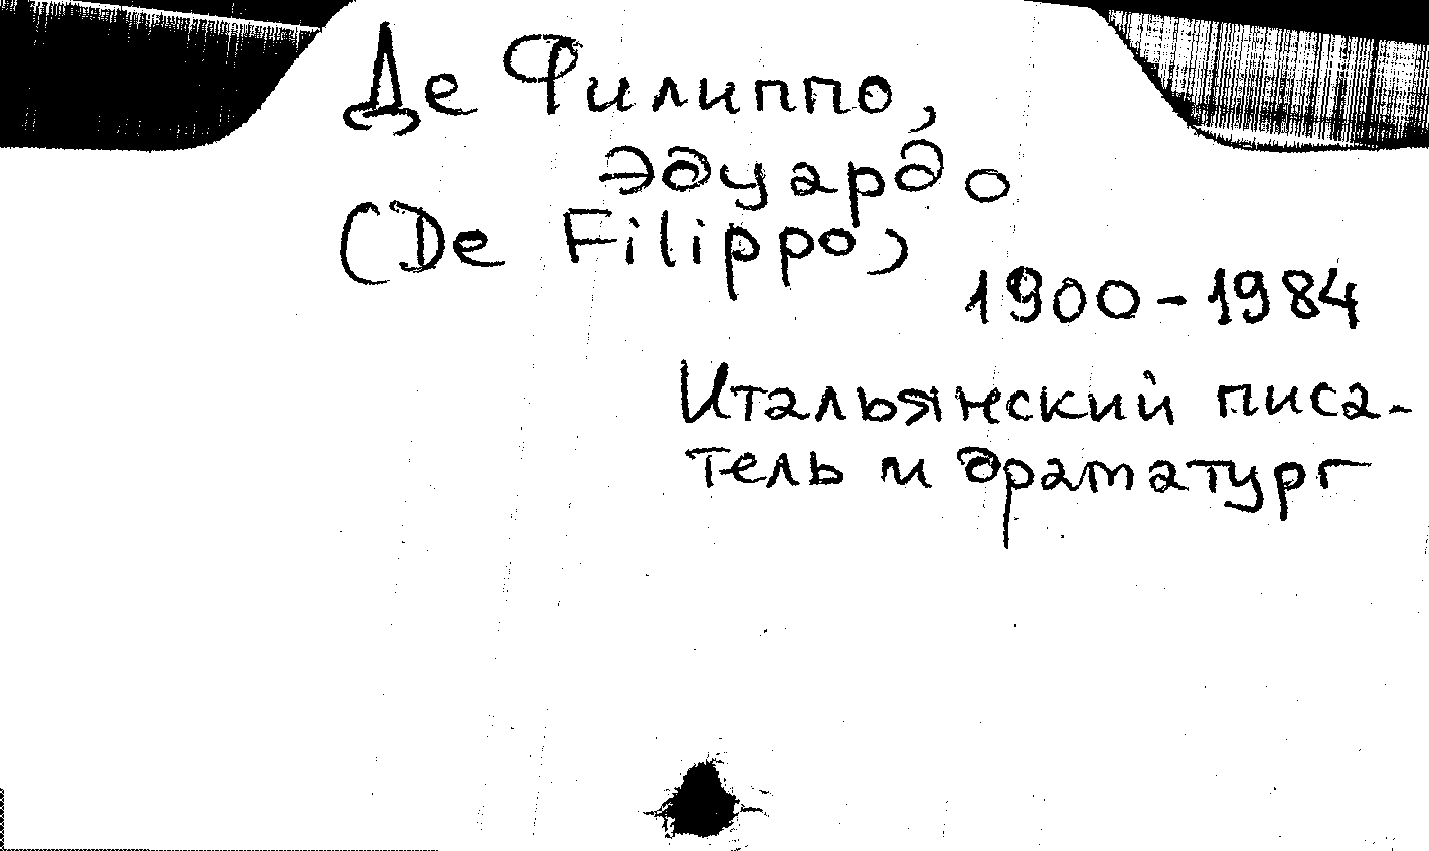 Де Филиппо,
Эдуардо
(De Filippo,)
1900-1984
Итальянский писа-
тель и драматург